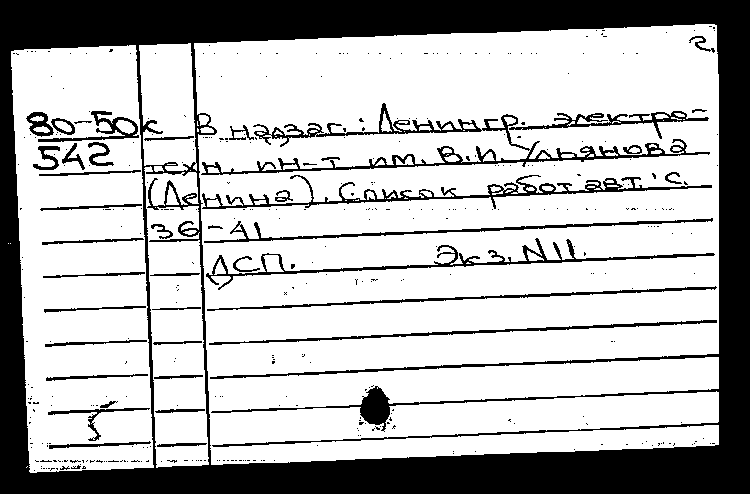 2.
80-50к В надзаг.: Ленингр. электро-
542 техн. ин-т им. В.И. Ульянова
(Ленина). Список работ авт. с.
36-41
ДСП. Экз. N11.